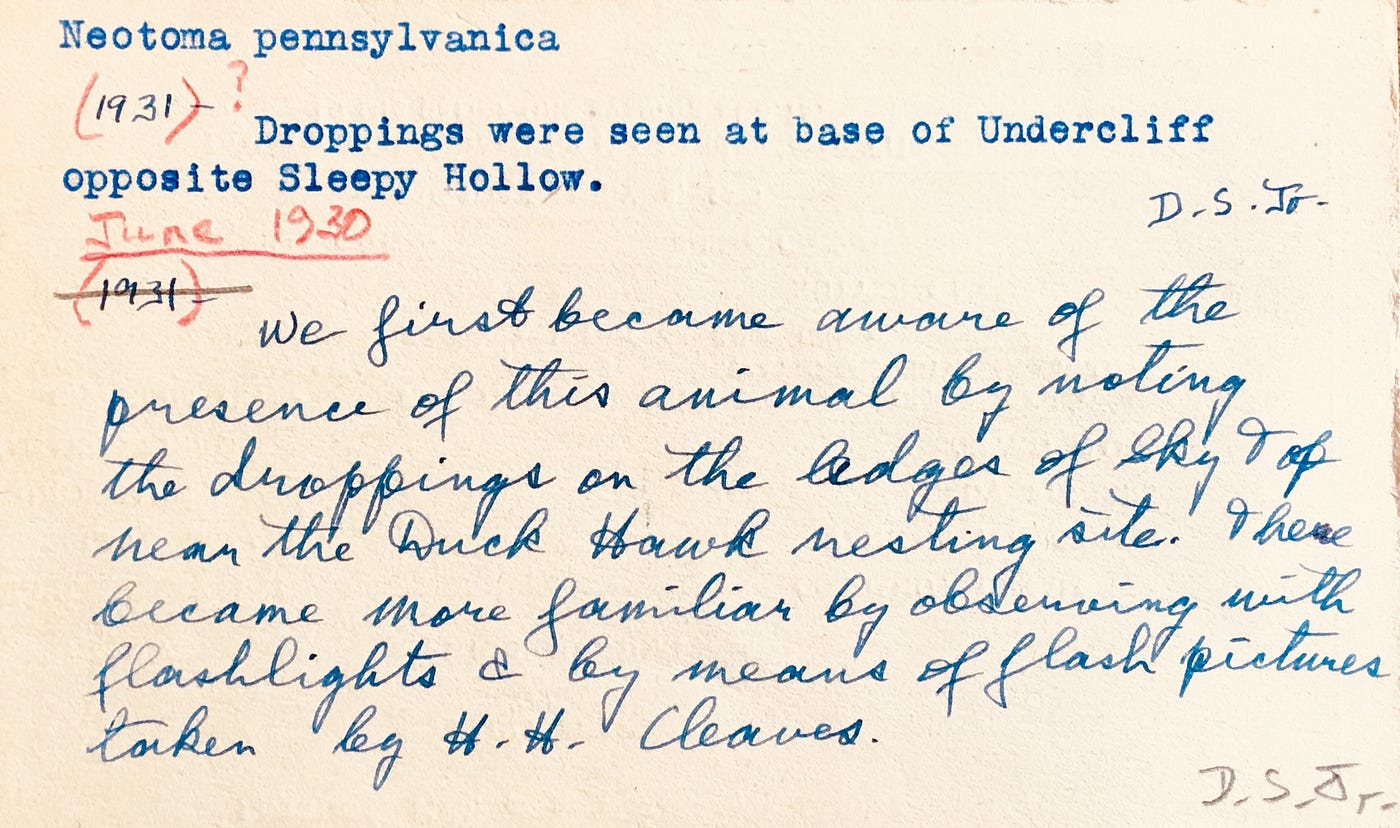 Neotoma pennsylvanica
(1931) - ?
Droppings were seen at base of Undercliff
opposite Sleepy Hollow.
D.S.Jr.
June 1930
(1931) -
We first became aware of the
presence of this animal by noting
the droppings on the ledges of Sky Top
near the Duck Hawk nesting site. There
became more familiar by observing with
flashlights & by means of flash pictures
taken by H.H. Cleaves.
D.S.Jr.